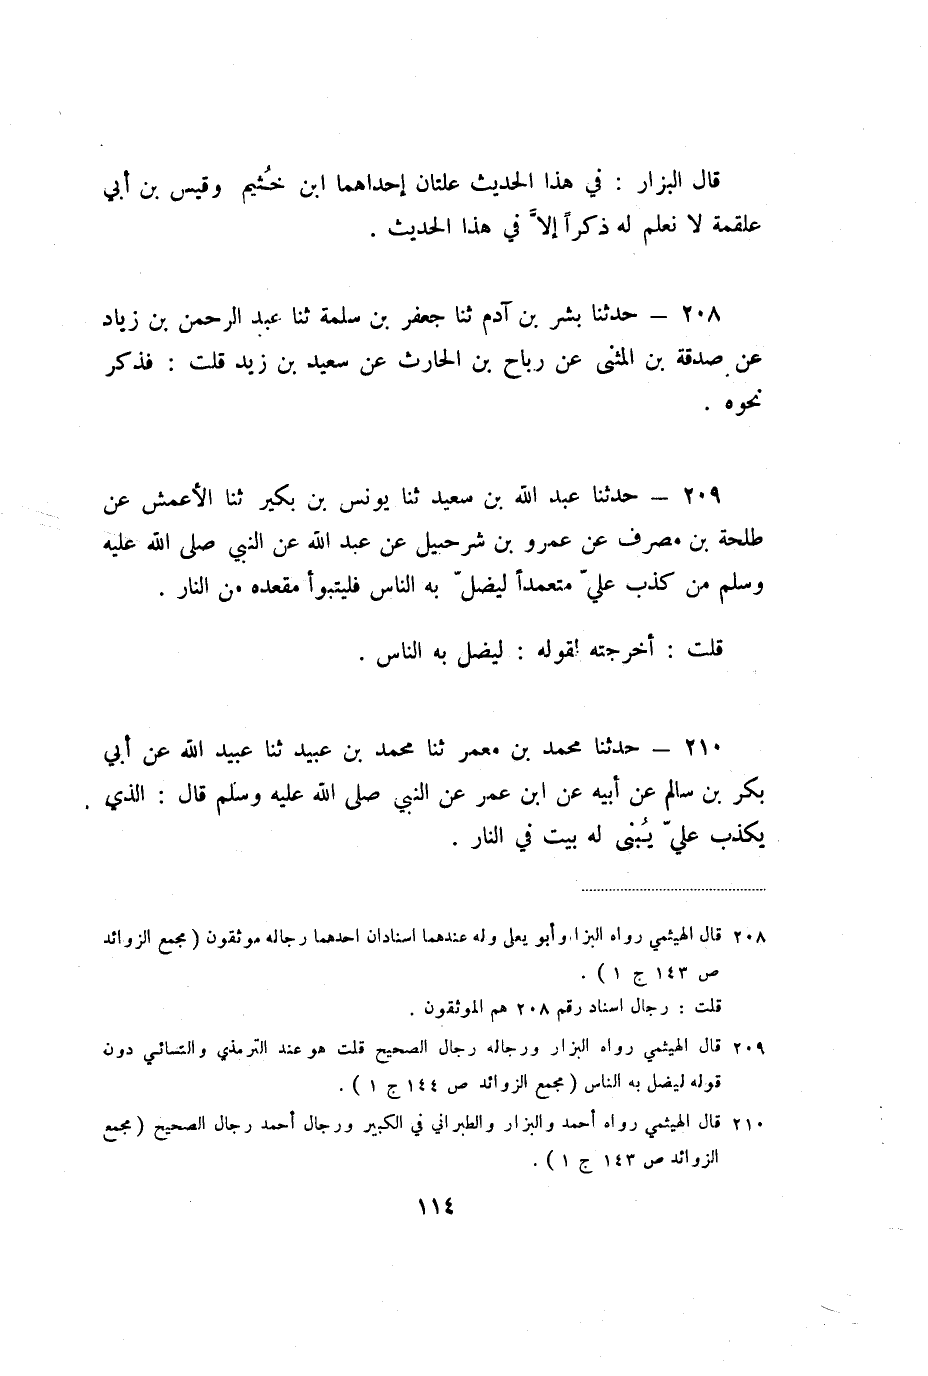 قال البزار : في هذا الحديث علتان إحداهما ابن خُثيم وقيس بن أبي
علقمة لا نعلم له ذكراً إلاَّ في هذا الحديث .
٢٠٨ – حدثنا بشر بن آدم ثنا جعفر بن سلمة ثنا عبد الرحمن بن زياد
عن صدقة بن المثنى عن رباح بن الحارث عن سعيد بن زيد قلت : فذكر
نحوه .
٢٠٩ – حدثنا عبد الله بن سعيد ثنا يونس بن بكير ثنا الأعمش عن
طلحة بن مصرف عن عمرو بن شرحبيل عن عبد الله عن النبي صلى الله عليه
وسلم من كذب عليّ متعمداً ليضلّ به الناس فليتبوأ مقعده من النار .
قلت : أخرجته لقوله : ليضل به الناس .
٢١٠ – حدثنا محمد بن معمر ثنا محمد بن عبيد ثنا عبيد الله عن أبي
بكر بن سالم عن أبيه عن ابن عمر عن النبي صلى الله عليه وسلم قال : الذي
يكذب عليّ يُبنى له بيت في النار .
٢٠٨ قال الهيثمي رواه البزار وأبو يعلى وله عندهما اسنادان احدهما رجاله موثقون ( مجمع الزوائد
ص ١٤٣ ج ١ ) .
قلت : رجال اسناد رقم ٢٠٨ هم الموثقون .
٢٠٩ قال الهيثمي رواه البزار ورجاله رجال الصحيح قلت هو عند الترمذي والنسائي دون
قوله ليضل به الناس ( مجمع الزوائد ص ١٤٤ ج ١ ) .
٢١٠ قال الهيثمي رواه أحمد والبزار والطبراني في الكبير ورجال أحمد رجال الصحيح ( مجمع
الزوائد ص ١٤٣ ج ١ ) .
١١٤